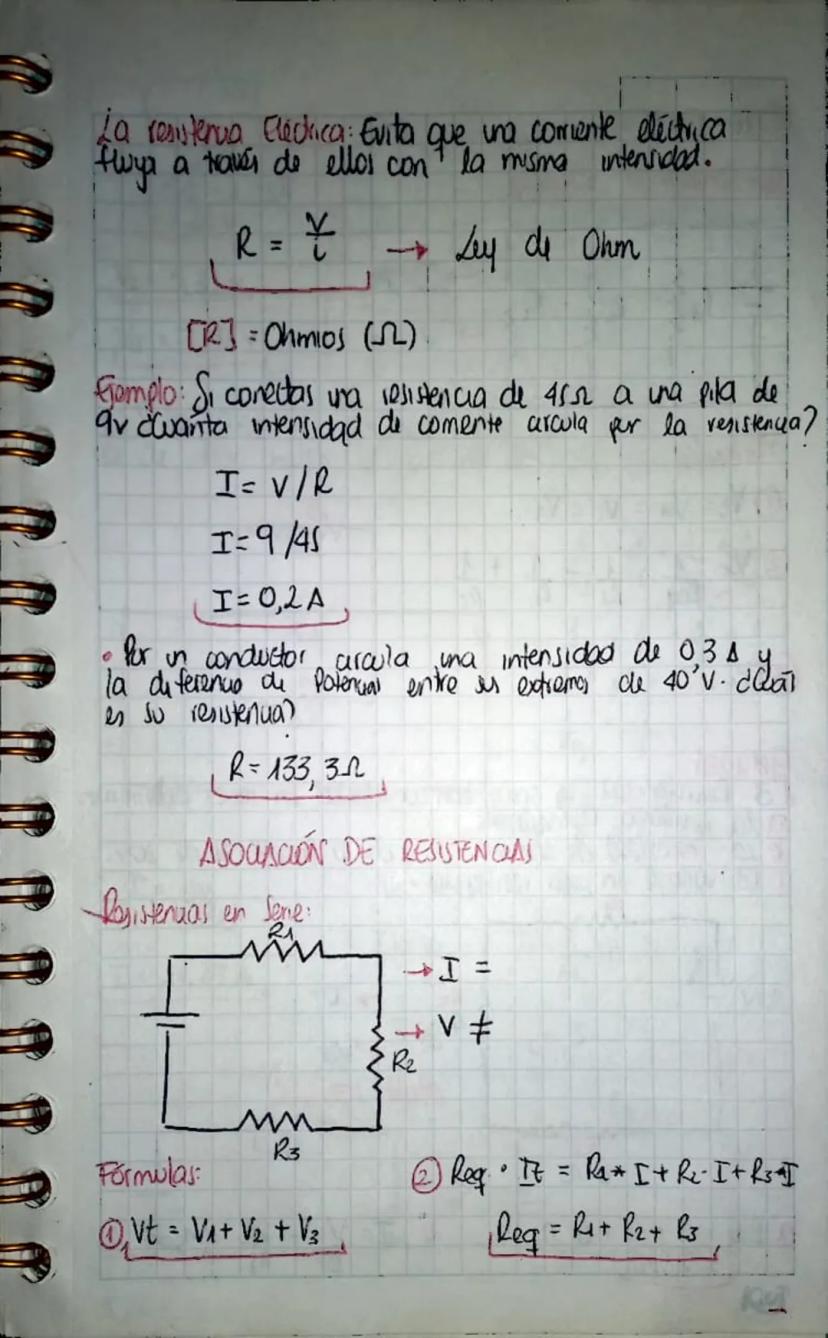 La resistencia Eléctrica: Evita que una corriente eléctrica
fluya a través de ellos con la misma intensidad.
R = V/i → Ley de Ohm
[R] = Ohmios (Ω)
Ejemplo: Si conectas una resistencia de 45Ω a una pila de
9v ¿Cuánta intensidad de corriente circula por la resistencia?
I = V/R
I = 9/45
I = 0,2 A
• Por un conductor circula una intensidad de 0,3 A y
la diferencia de Potencial entre sus extremos de 40 V. ¿Cuál
es su resistencia?
R = 133,3Ω
ASOCIACIÓN DE RESISTENCIAS
Resistencias en Serie:
R1
→ I =
→ V ≠
R2
R3
Fórmulas:
① Vt = V1 + V2 + V3
② Req · It = R1 * I + R2 · I + R3 * I
Req = R1 + R2 + R3